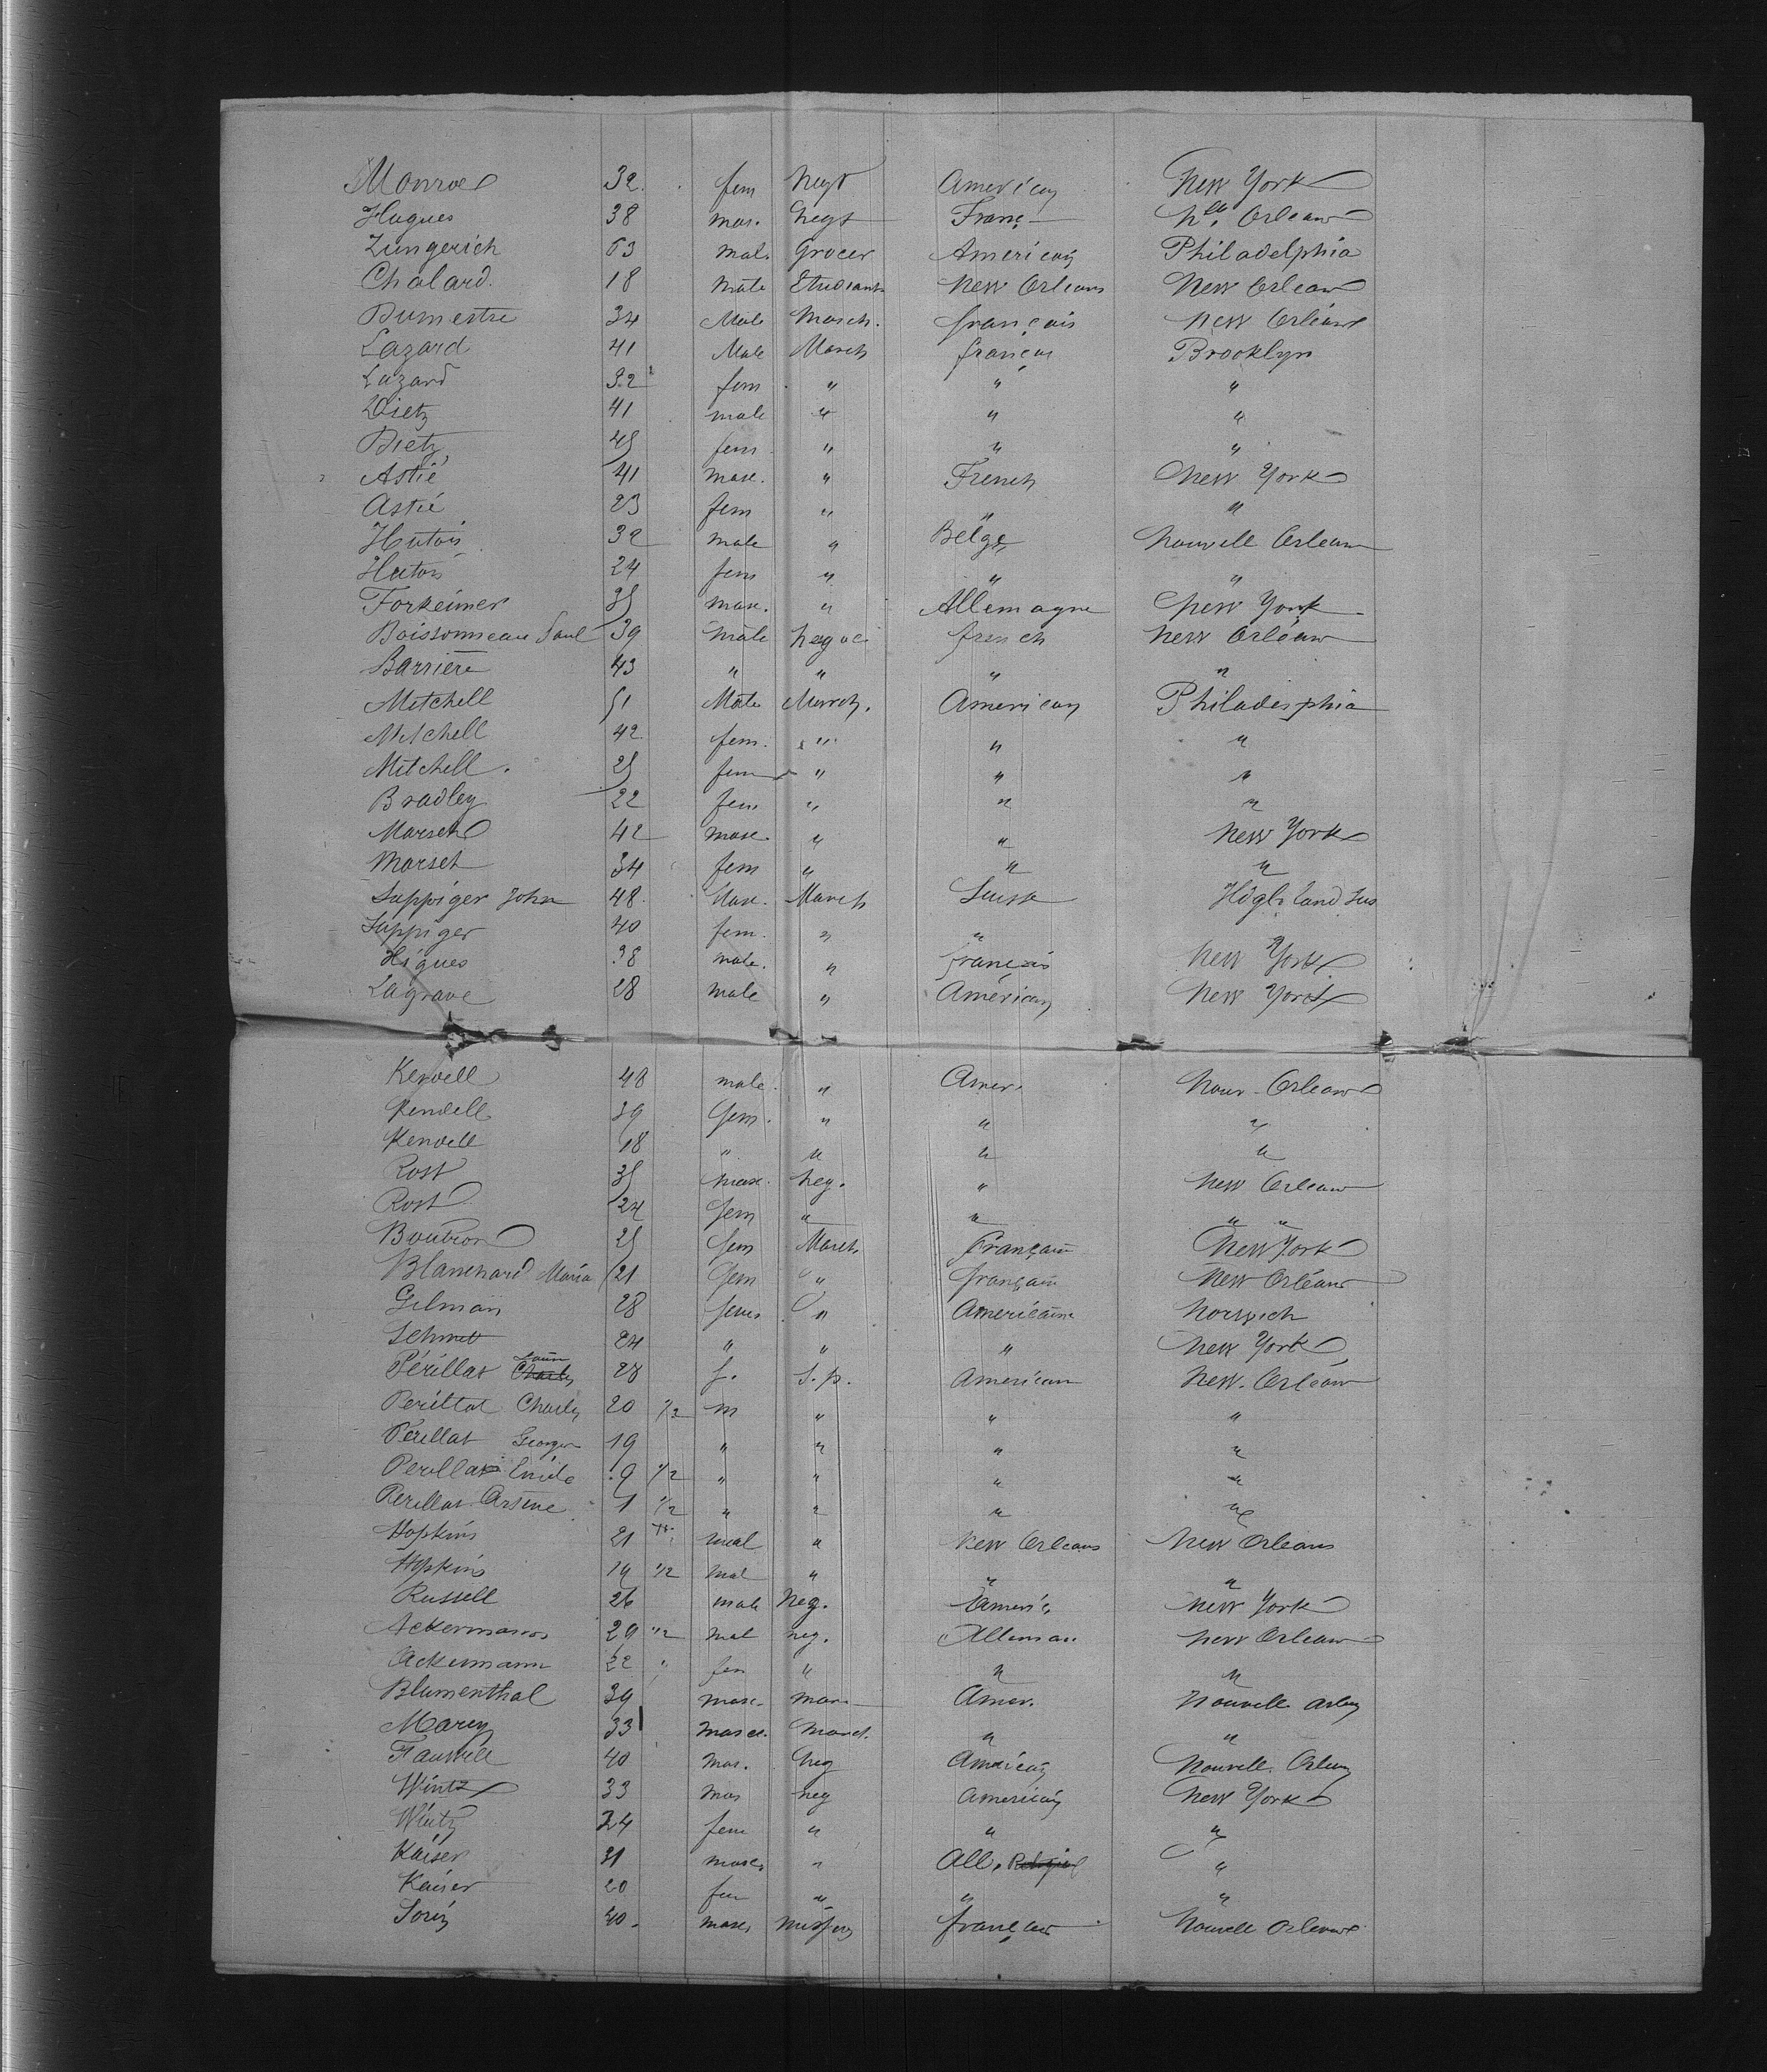 Monroe 32 fem Negt American New York
Hugues 38 mas. Negt Franç Nlle Orleans
Zungerich 63 Mal. Grocer American Philadelphia
Chalard. 18 Mâle Etudiant New Orleans New Orleans
Dumestre 34 Male March. français New Orleans
Lazard 41 Male March français Brooklyn
Lazard 32 fem " " "
Dietz 41 male " " "
Dietz 45 fem " " "
Astié 41 masc. " French New York
Astié 23 fem " " "
Hutois 32 male " Belge Nouvelle Orleans
Hutois 24 fem " " "
Forkeimer 35 masc. " Allemagne New York
Boissonneau Paul 39 mâle Negoc french New Orléans
Barrière 43 " " " "
Mitchell 51 Mâle March. American Philadesphia
Mitchell 42 fem. " " "
Mitchell. 25 fem " " "
Bradley 22 fem " " "
Marsch 42 masc. " " New York
Marsch 34 fem " " "
Suppiger John 48 Masc. March Suisse Highland
Suppiger 40 fem. " "
Higues 38 male. " français New York
Lagrave 28 male " American New York
Kendell 48 male. " Amer. Nouv. Orleans
Kendell 39 fem. " " "
Kendell 18 " " " "
Rost 35 masc. Neg. " New Orleans
Rost 24 fem " " " "
Boutron 25 fem March Française New York
Blanchard Maria 21 fem " française New Orléans
Gilman 28 fem " Américaine Norwich
Schmitt 24 " " " New York
Périllat 28 f. S.p. American New. Orléans
Perillat Charles 20 1/2 m " " "
Périllat Georges 19 " " " "
Perillat Emile 9 1/2 " " " "
Perillat Arsène 1 1/2 " " " "
Hopkins 21 mal " New Orleans New Orleans
Hopkins 19 1/2 mal " " "
Russell 26 male Neg. Americ New York
Ackermann 29 1/2 mal neg. Alleman New Orleans
Ackermann 22 " fem " " "
Blumenthal 39 masc. mar Amer. Nouvelle
Marcy 33 masc. march. " "
Fauvelle 40 mas. Neg American Nouvelle
Wintz 33 mas neg American New York
Wintz 24 fem " " "
Kaiser 31 masc. " All. "
Kaiser 20 fem " " "
40. masc. français Nouvelle Orleans